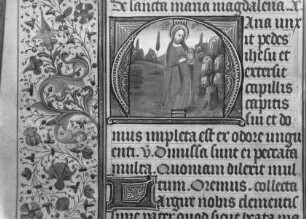 De sancta maria magdalena. A
aria unx
it pedes
ihesu et
extersit
capillis
capitis
sui et do
mus impleta est ex odore ungu
enti. V. Dimissa sunt ei peccata
multa. Quoniam dilexit mul
tum. Oremus. collecta
Largire nobis clementissi
me pater quod sicut beata ma